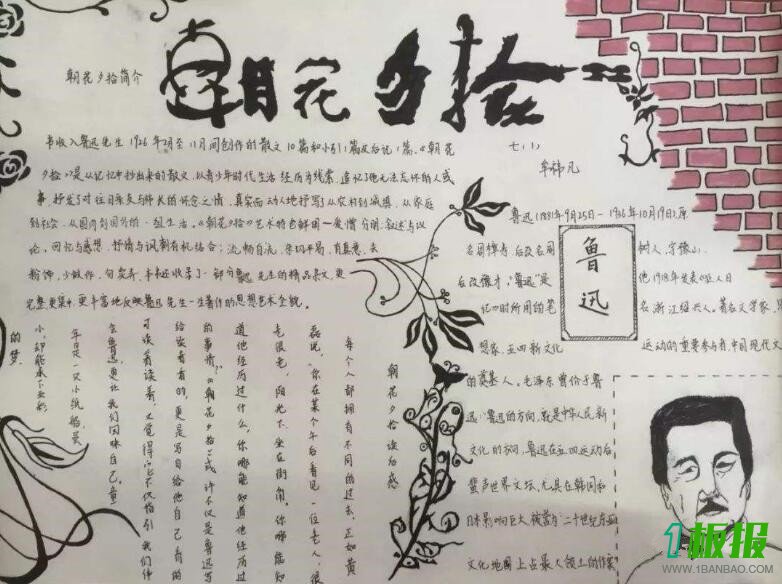 朝花夕拾
朝花夕拾简介
书收入鲁迅先生1926年2月至11月间创作的散文10篇和小引1篇及后记1篇,《朝花
夕拾》是从记忆中抄出来的散文,以青少年时代生活经历为线索,追记了他无法忘怀的人或
事,抒发了对往日亲友与师长的怀念之情,真实而动人地抒写了从农村到城镇,从家庭
到社会,从国内到国外的一组生活。《朝花夕拾》艺术特色鲜明一爱憎分明:叙述与议
论,回忆与感想,抒情与讽刺有机结合;流畅自流,
粉饰,少做作,勾卖弄,本书还收录了一部分鲁迅先生的精品杂文,更
完整更集中,更丰富地反映鲁迅先生一生著作的思想艺术全貌。
七(1)
牟祎凡
鲁迅
鲁迅(1881年9月25日-1936年10月19日),原
名周樟寿,后改名周树人,字豫山,
后改豫才,"鲁迅"是他1918年发表《狂人日
记》时所用的笔名,浙江绍兴人。著名文学家,
想家,五四新文化运动的重要参与者,中国现代文
的奠基人。毛泽东曾价于鲁
迅:"鲁迅的方向,就是中华人民新
文化的方向,鲁迅在五四运动后
蜚声世界文坛,尤其在韩国和
日本影响巨大,被誉为"二十世纪东亚
文化地图上占最大领土的作家
朝花夕拾读后感
每个人都拥有不同的过去,正如黄
磊说,"你在某个午后看见一位老人,很
老很老,阳光下,坐在街角。你哪能知
道他经历过什么,你哪能知道他经历过
的事情?"《朝花夕拾》或许不仅是鲁迅写
给读者看的,更是写自给他自己看的
可读着读着,又觉得它不仅指引我们体
会鲁迅更让我们回味自己,童
年是一只小纸船,虽
小,却能承下五彩
的梦。
1板报
WWW.1BANBAO.COM